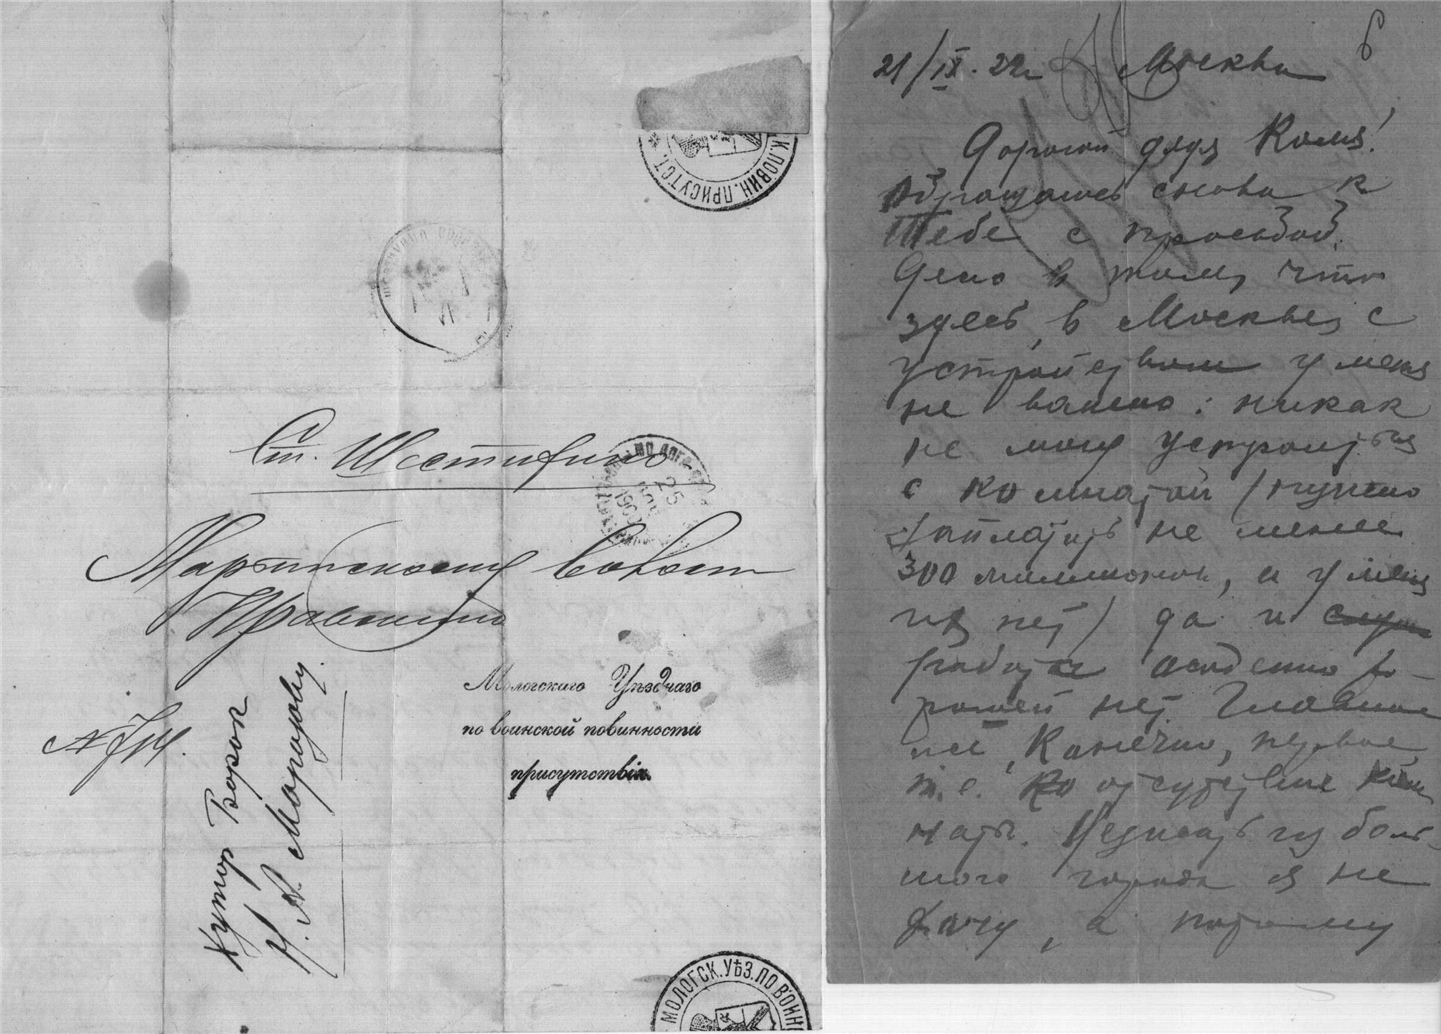 К. ПОВИН. ПРИСУТСТ.
Ст. Шестихино
25
190
Марьинскому Волост
Правлению
Мологскаго Уѣзднаго
по воинской повинности
присутствія.
№
Хутор Борок
Н. А. Морозову
МОЛОГСК. УѢЗ. ПО ВОИН
6
21/IX. 22 г. Москва
Дорогой дядя Коля!
Обращаюсь снова к
Тебе с просьбой.
Дело в том, что
здесь, в Москве, с
устройством у меня
не важно: никак
не могу устроиться
с комнатой (нужно
заплатить не менее
300 миллионов, а у меня
их нет) да и
работы особенно хо-
рошей нет. Главное
же, конечно, первое
т.е. отсутствие ком
наты. Уезжать из боль-
шого города я не
хочу, а потому